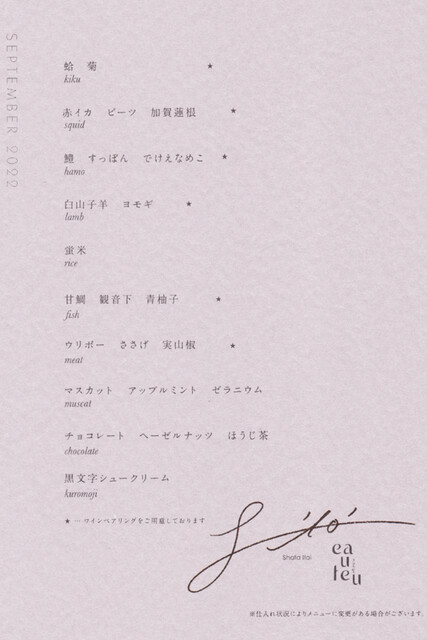 SEPTEMBER 2022
蛤　菊　★
kiku
赤イカ　ビーツ　加賀蓮根　★
squid
鱧　すっぽん　でけえなめこ　★
hamo
白山子羊　ヨモギ　★
lamb
蛍米
rice
甘鯛　観音下　青柚子　★
fish
ウリボー　ささげ　実山椒　★
meat
マスカット　アップルミント　ゼラニウム
muscat
チョコレート　ヘーゼルナッツ　ほうじ茶
chocolate
黒文字シュークリーム
kuromoji
★ ― ワインペアリングをご用意しております
Shota Itoi
eauteu
※仕入れ状況によりメニューに変更がある場合がございます。